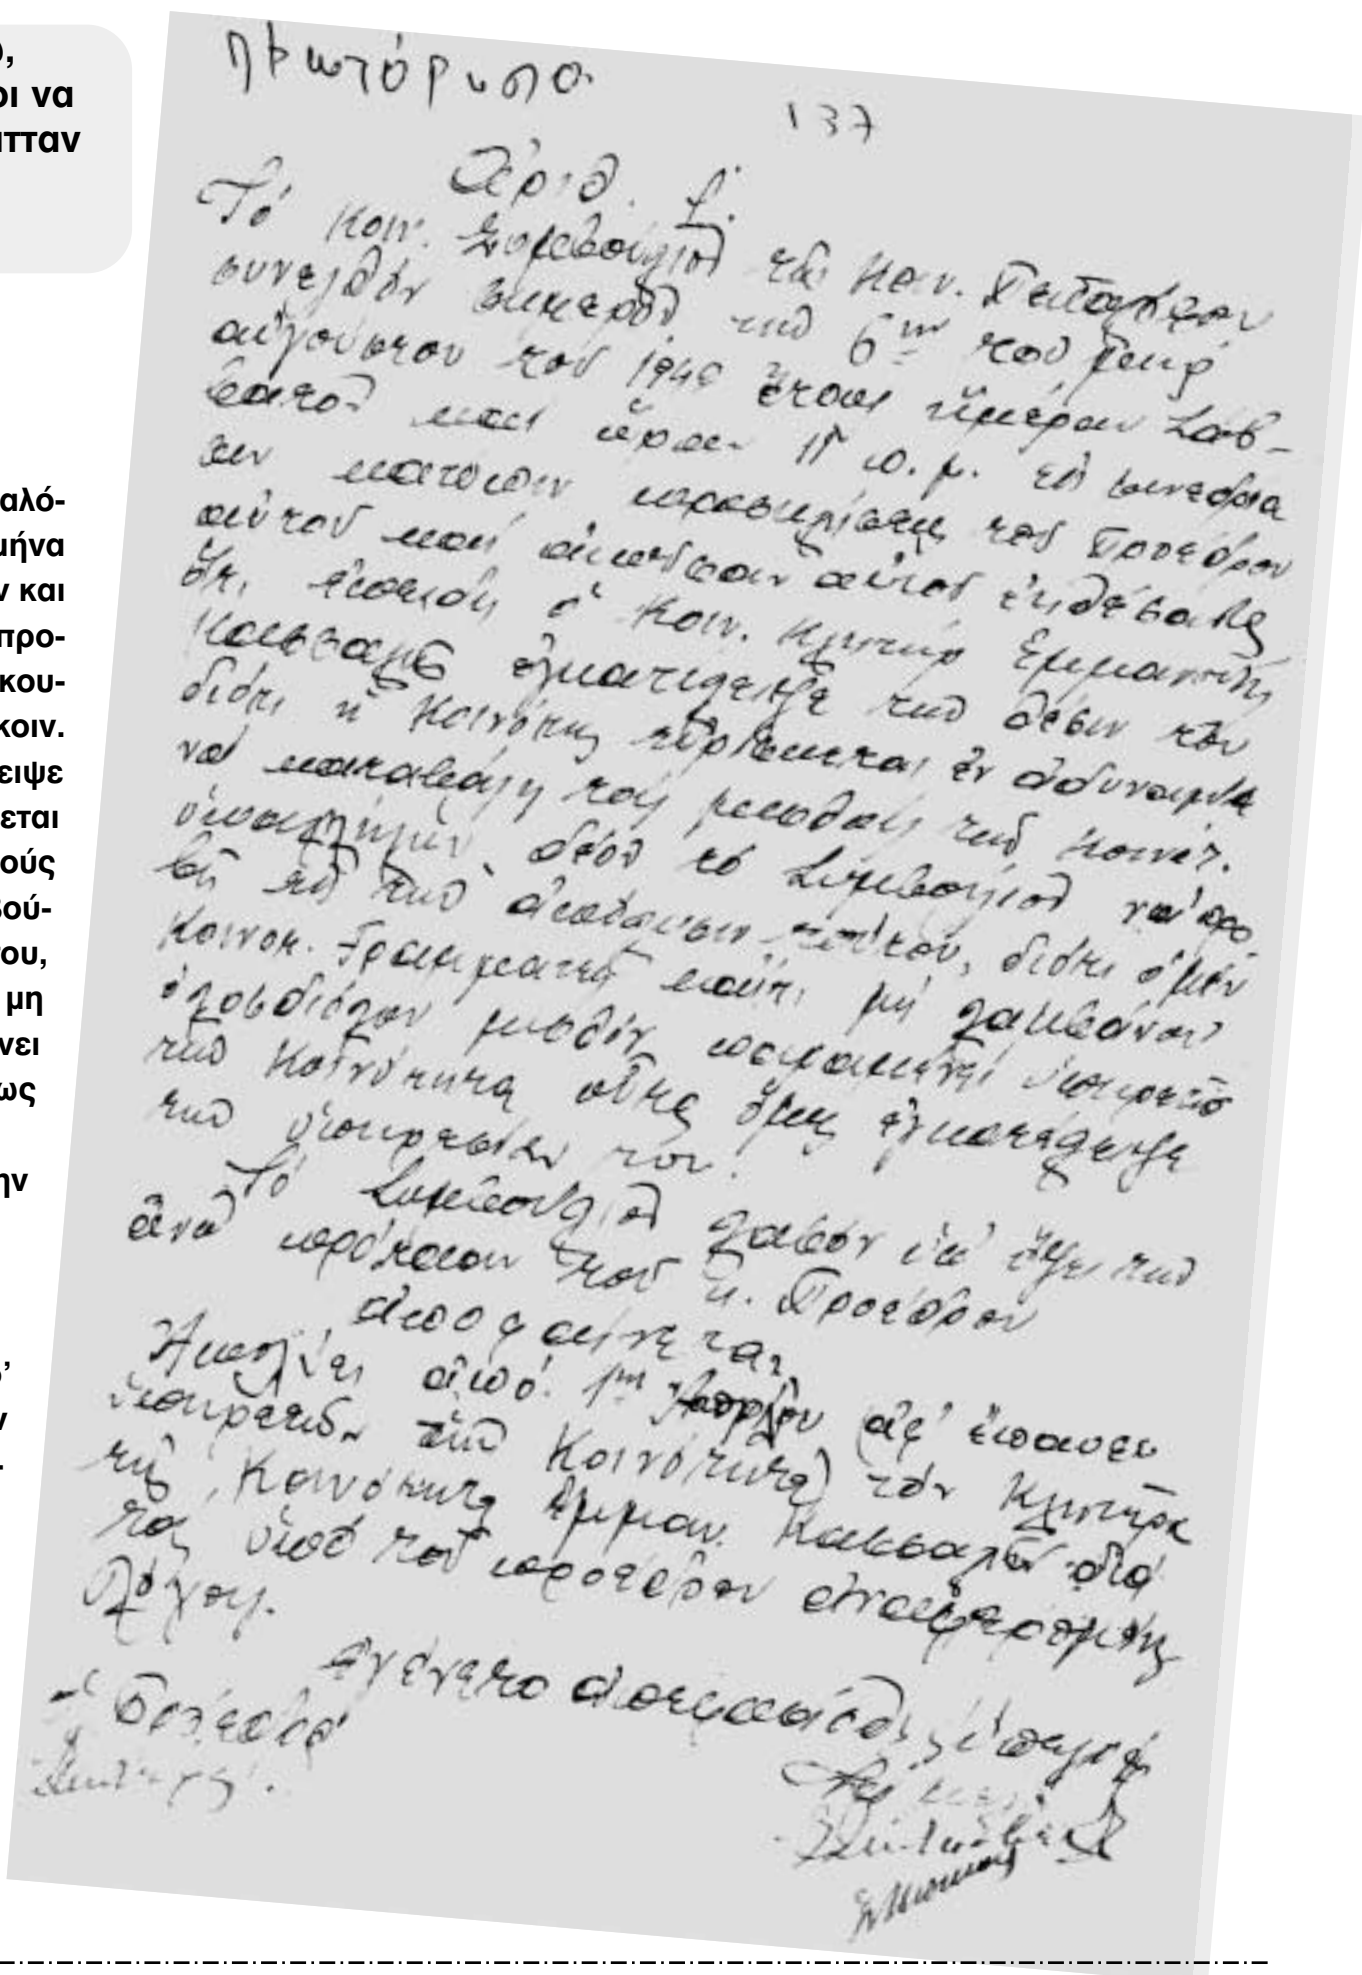 ο,
οι να
ατταν
αλό-
μήνα
ν και
προ-
κου-
κοιν.
ειψε
εται
ούς
βού-
του,
μη
νει
ως
ην
ο’
ν
.
πρωτότυπο
137
Ἀριθ.
Τό Κοιν. Συμβούλιον τῆς Κοιν.
συνελθόν σήμερον τήν 6ην τοῦ
αὐγούστου τοῦ ἔτους ἡμέραν Σάβ-
βατον καί ὥραν π.μ. εἰς συνεδρία
ιν κατόπιν προσκλήσεως τοῦ Προέδρου
αὐτοῦ καί αὐτοῦ ἐκθέσαντος
ὅτι ἐπειδή ὁ Κοιν. Κλητήρ Ἐμμανουήλ
ἐγκατέλειψε τήν θέσιν του
διότι ἡ Κοινότης εὑρίσκεται ἐν ἀδυναμία
νά καταβάλη τούς μισθούς τῶν Κοινοτ.
ὑπαλλήλων, δέον τό Συμβούλιον νά προ
βῆ εἰς τήν ἀπόλυσιν τούτου, διότι ὁ μέν
Κοινοτ. Γραμματεύς καίτοι μή λαμβάνει
ὁλοσδιόλου μισθόν παραμένει ὑπηρετῶν
τήν Κοινότητα οὗτος ὅμως ἐγκατέλειψε
τήν ὑπηρεσίαν του.
Τό Συμβούλιον λαβόν ὑπ’ ὄψει τήν
ἄνω πρότασιν τοῦ κ. Προέδρου
ἀποφαίνεται
Ἀπολύει ἀπό 1ης Ἀπριλίου ἀφ’ ἔπαυσε
ὑπηρετῶν τήν Κοινότητα τόν Κλητῆρα
τῆς Κοινότητος Ἐμμαν. διά
τούς ὑπό τοῦ προέδρου ἀναφερομένους
λόγους.
Ἐγένετο ἀπεφασίσθη ὑπεγράφη
Ὁ Πρόεδρος